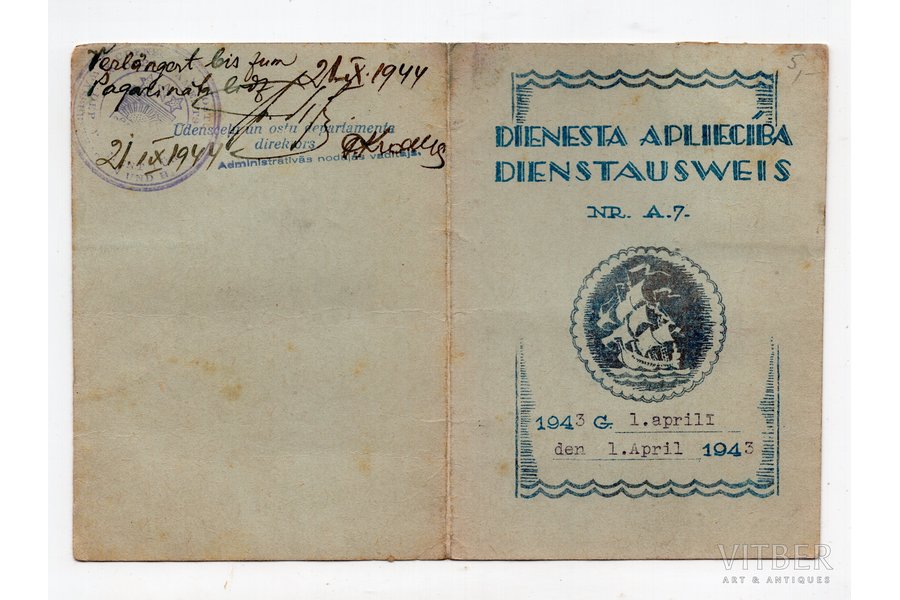 Verlängert bis zum
Pagarināts līdz 21.IX.1944
21.IX 1944
Ūdensceļu un ostu departamenta
direktors
Administratīvās nodaļas vadītājs
UND H
5,-
DIENESTA APLIECĪBA
DIENSTAUSWEIS
NR. A.7.
1943 G. 1.aprīlī
den 1.April 1943
VITBER
ART & ANTIQUES